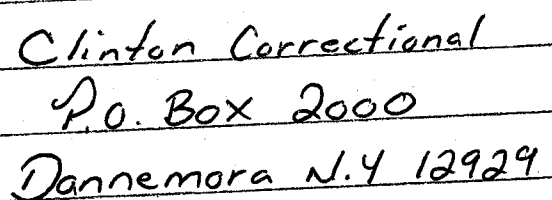 Clinton Correctional
P.O. Box 2000
Dannemora N.Y 12929